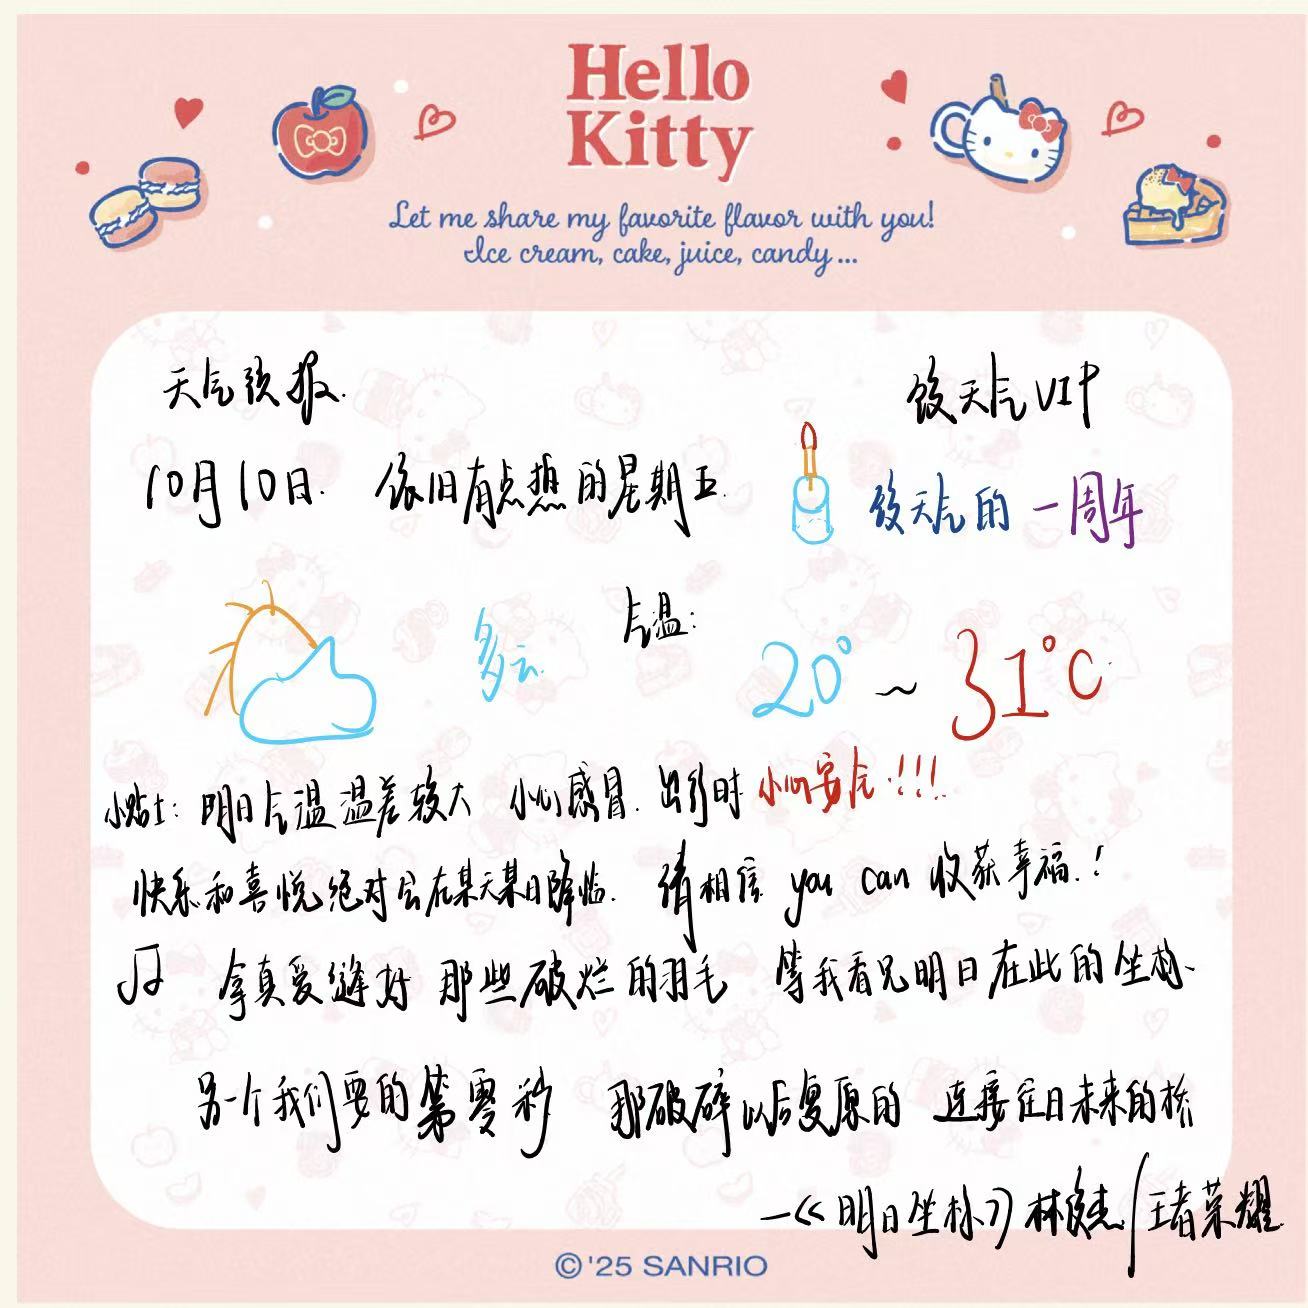 Hello
Kitty
Let me share my favorite flavor with you!
Ice cream, cake, juice, candy...
天气预报.
饺天气VIP
10月10日. 依旧有点热的星期五.
饺天气的一周年
多云
气温:
20° ~ 31°C
小贴士: 明日气温温差较大 小心感冒. 出行时 小心安全!!!
快乐和喜悦绝对会在某天某日降临. 请相信 you can 收获幸福.!
♫ 拿真爱缝好 那些破烂的羽毛 等我看见明日在此的坐标
另一个我们要的第零秒 那破碎以后复原的 连接往日未来的桥
—《明日坐标》林俊杰/王者荣耀
©'25 SANRIO